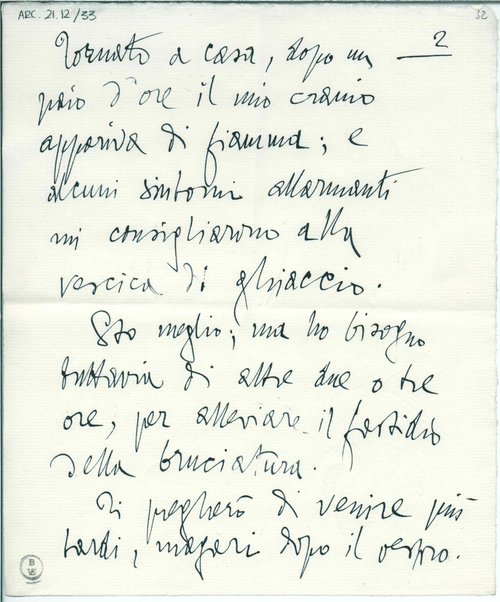 ARC. 21.12/33
32
2
Tornato a casa, dopo un
paio d'ore il mio cranio
appariva di fiamma; e
alcuni sintomi allarmanti
mi consigliarono alla
vescica di ghiaccio.
Sto meglio; ma ho bisogno
tuttavia di altre due o tre
ore, per alleviare il fastidio
della bruciatura.
Ti pregherò di venire più
tardi, magari dopo il vespro.